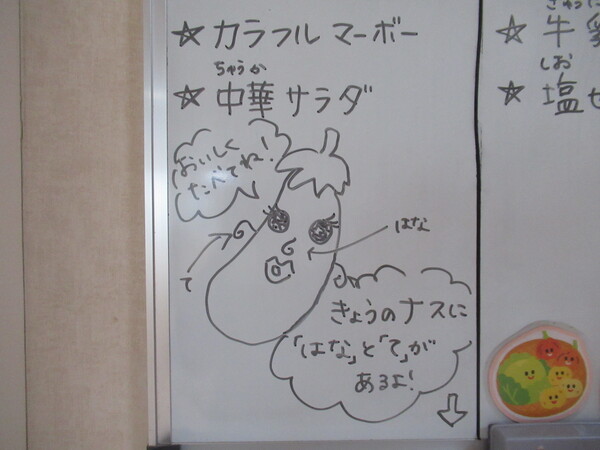 ☆ カラフル マーボー
ちゅうか
☆ 中華 サラダ
おいしく
たべてね!
はな
て
きょうのナスに
「はな」と「て」が
あるよ!
☆ 牛
しお
☆ 塩